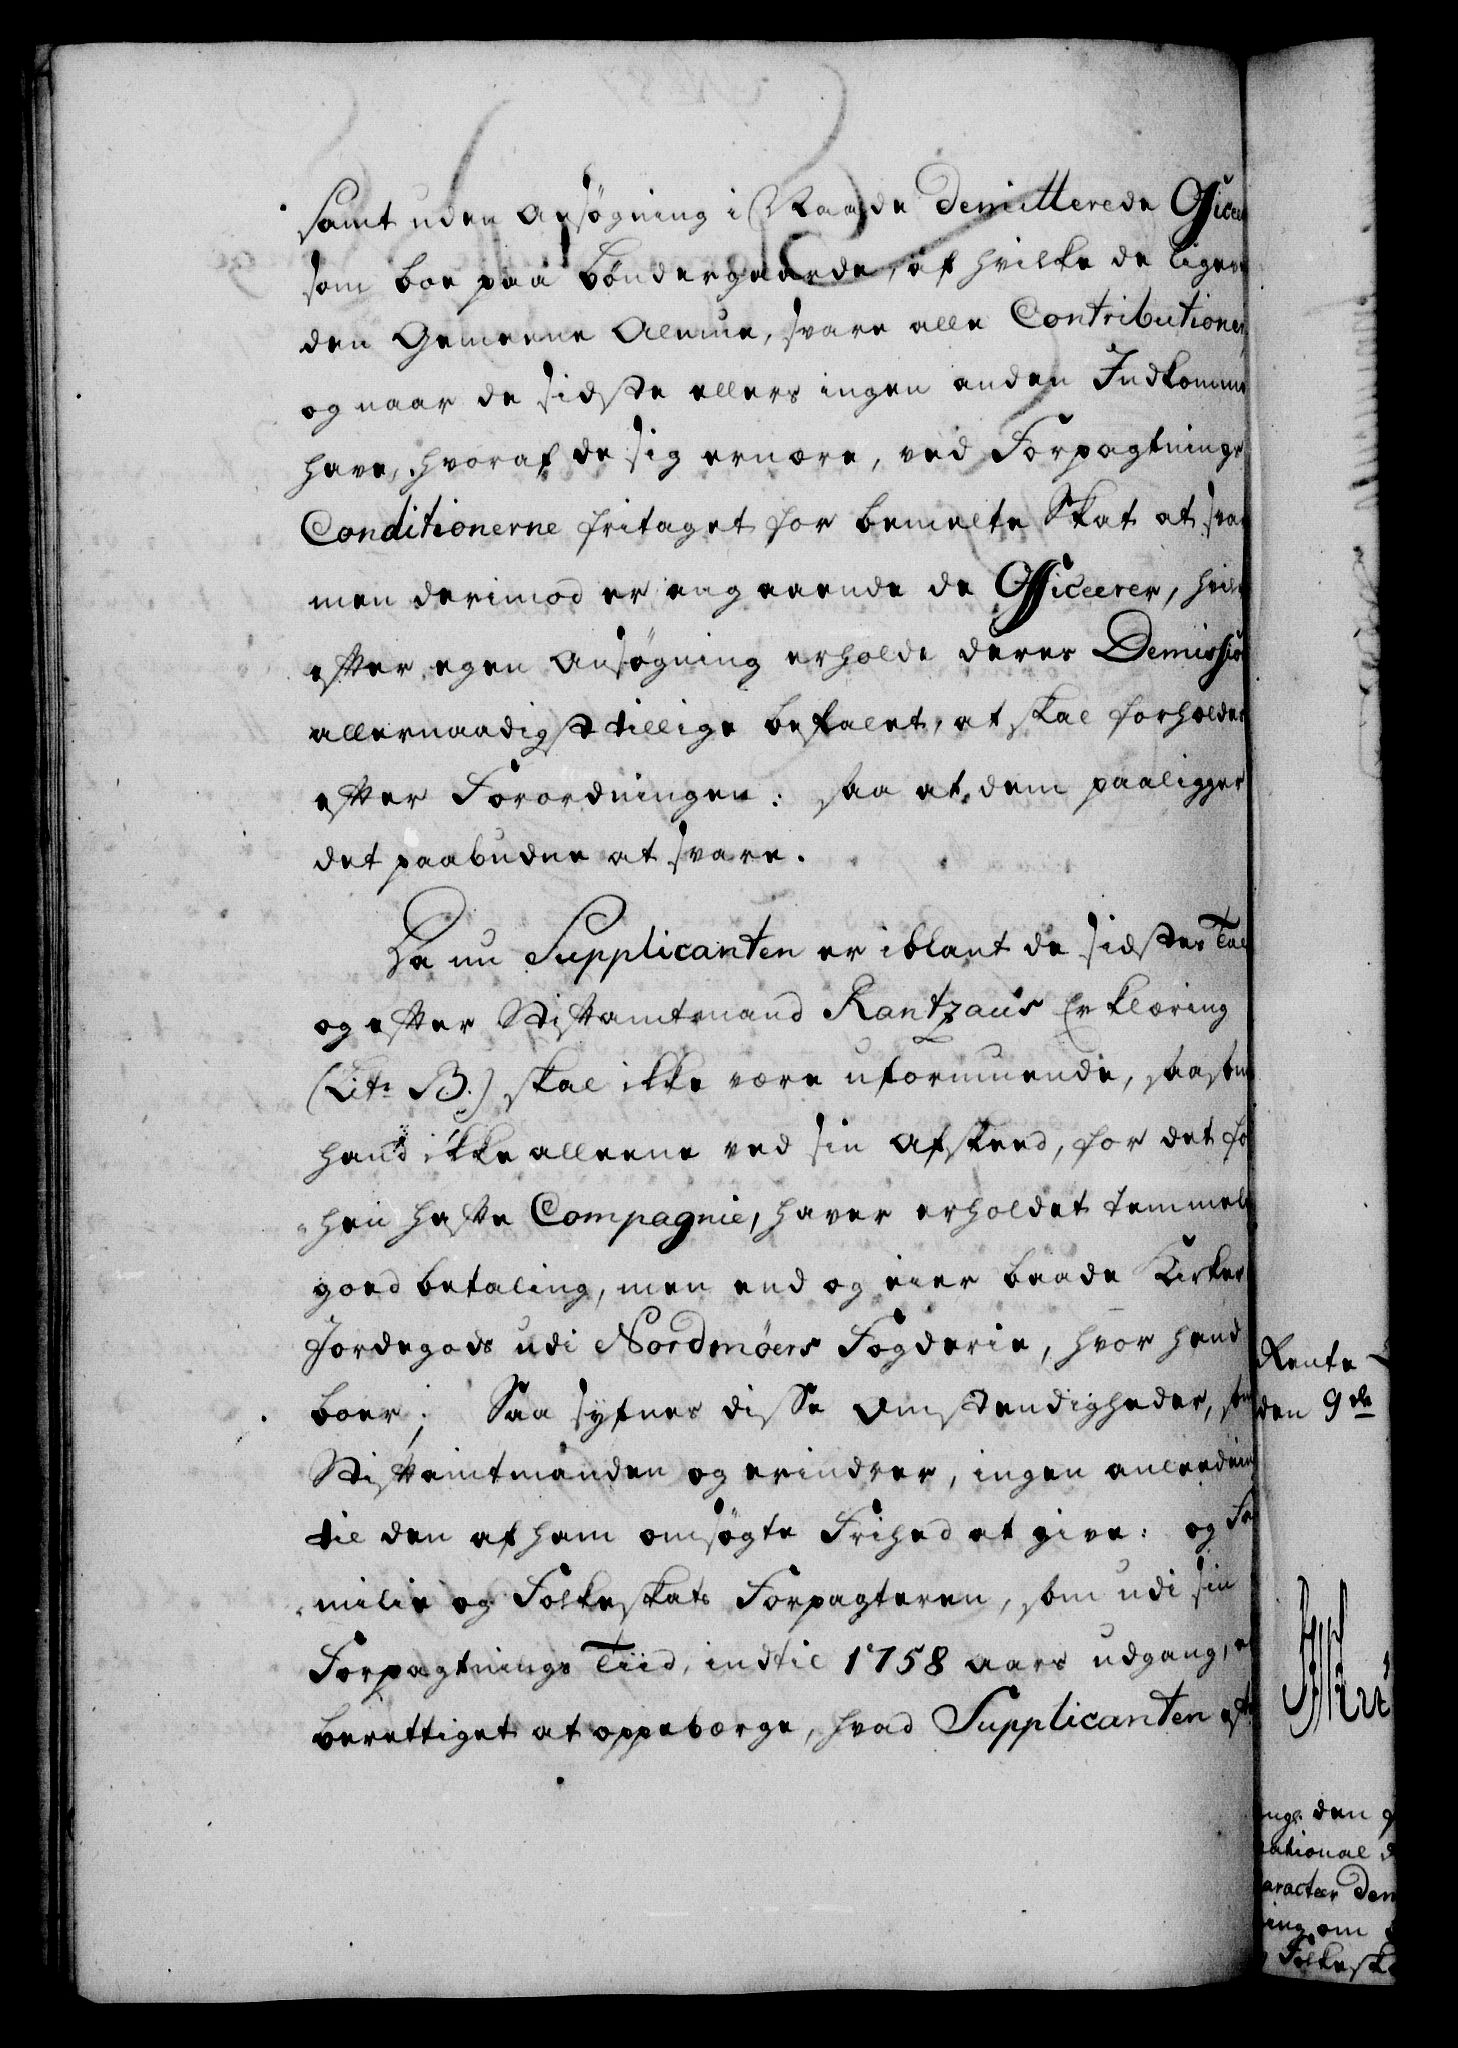 samt uden Ansøgning i Naade Demitterede Officee
som boe paa Bøndergaarde, af hvilke de ligere
den Gemeene Almue, svare alle Contributioner,
og naar de sidste ellers ingen anden Indkomme
have, hvoraf de sig ernære, ved Forpagtnings
Conditionerne fritaget for bemelte Skat at svar
men derimod er angaaende de Officeerer, hvil
efter egen Ansøgning erholde deres Demissio
allernaadigst tillige befalet, at skal forholdes
efter Forordningen: saa at dem paaligger
det paabudne at svare.
Da nu Supplicanten er iblant de sidstes Tal
og efter Stiftamtmand Rantzaus Erklæring
(Lit: B.) skal ikke være uformuende, saasom
hand ikke alleene ved sin Afskeed, for det for
hen hafte Compagnie, haver erholdet temmel
goed betaling, men end og eier baade Kirker
Jordegods udi Nordmøers Fogderie, hvor hand
boer; Saa syfnes disse Omstendigheder, som
Stiftamtmanden og erindrer, ingen anleedni
til den af ham omsøgte Frihed at give: og Fa
milie og Folkeskats Forpagteren, som udi sin
Forpagtnings Tiid, indtil 1758 aars udgang, e
berettiget at oppebærge, hvad Supplicanten eft
Rente
den 9de
den
national
aracteer Dem
ing om
Folkeska